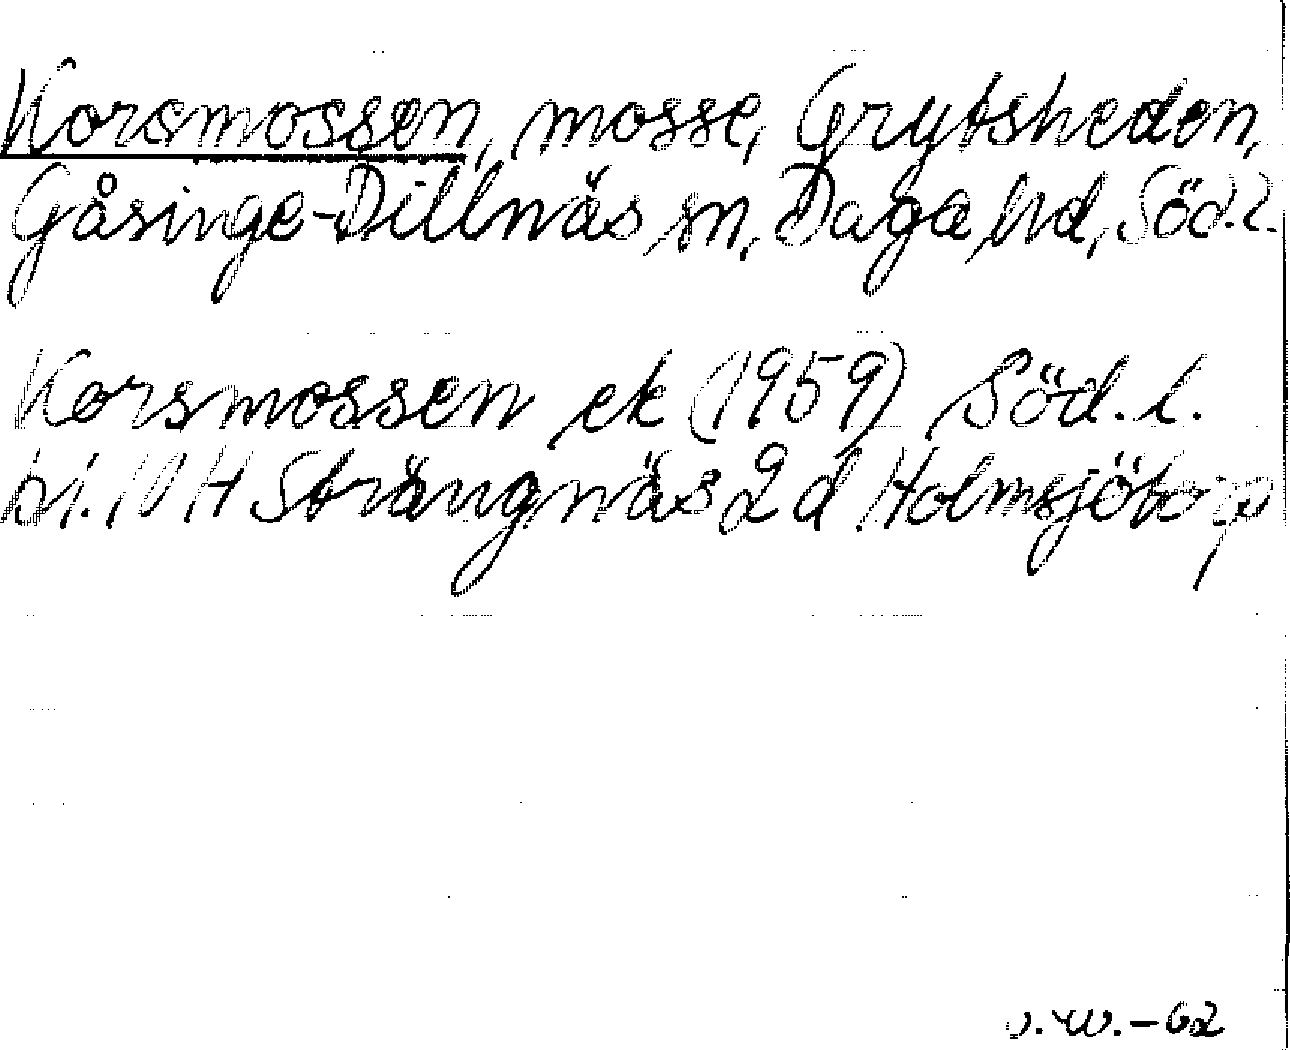 Korsmossen, mosse, Grytsheden,
Gåsinge-Dillnäs sn, Daga hd, Söd.l.
Korsmossen ek (1959) Söd. l.
bl. 10 H Strängnäs 2 d Holmsjötorp
J.W.-62